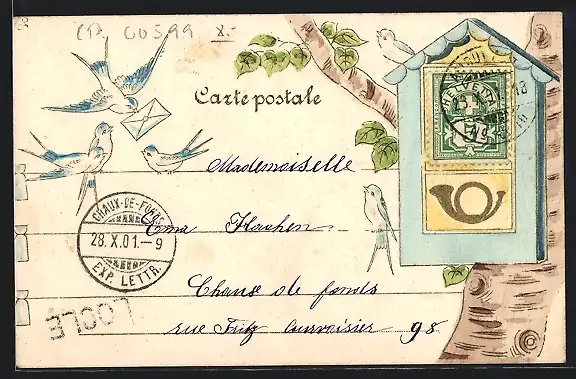 CP 00599 X.-
Carte postale
HELVETIA
Mademoiselle
Ema Flachen
CHAUX-DE-FONDS
28.X.01.-9
EXP. LETTR.
Chaux de fonds
LOCLE
rue Fritz Courvoisier 98